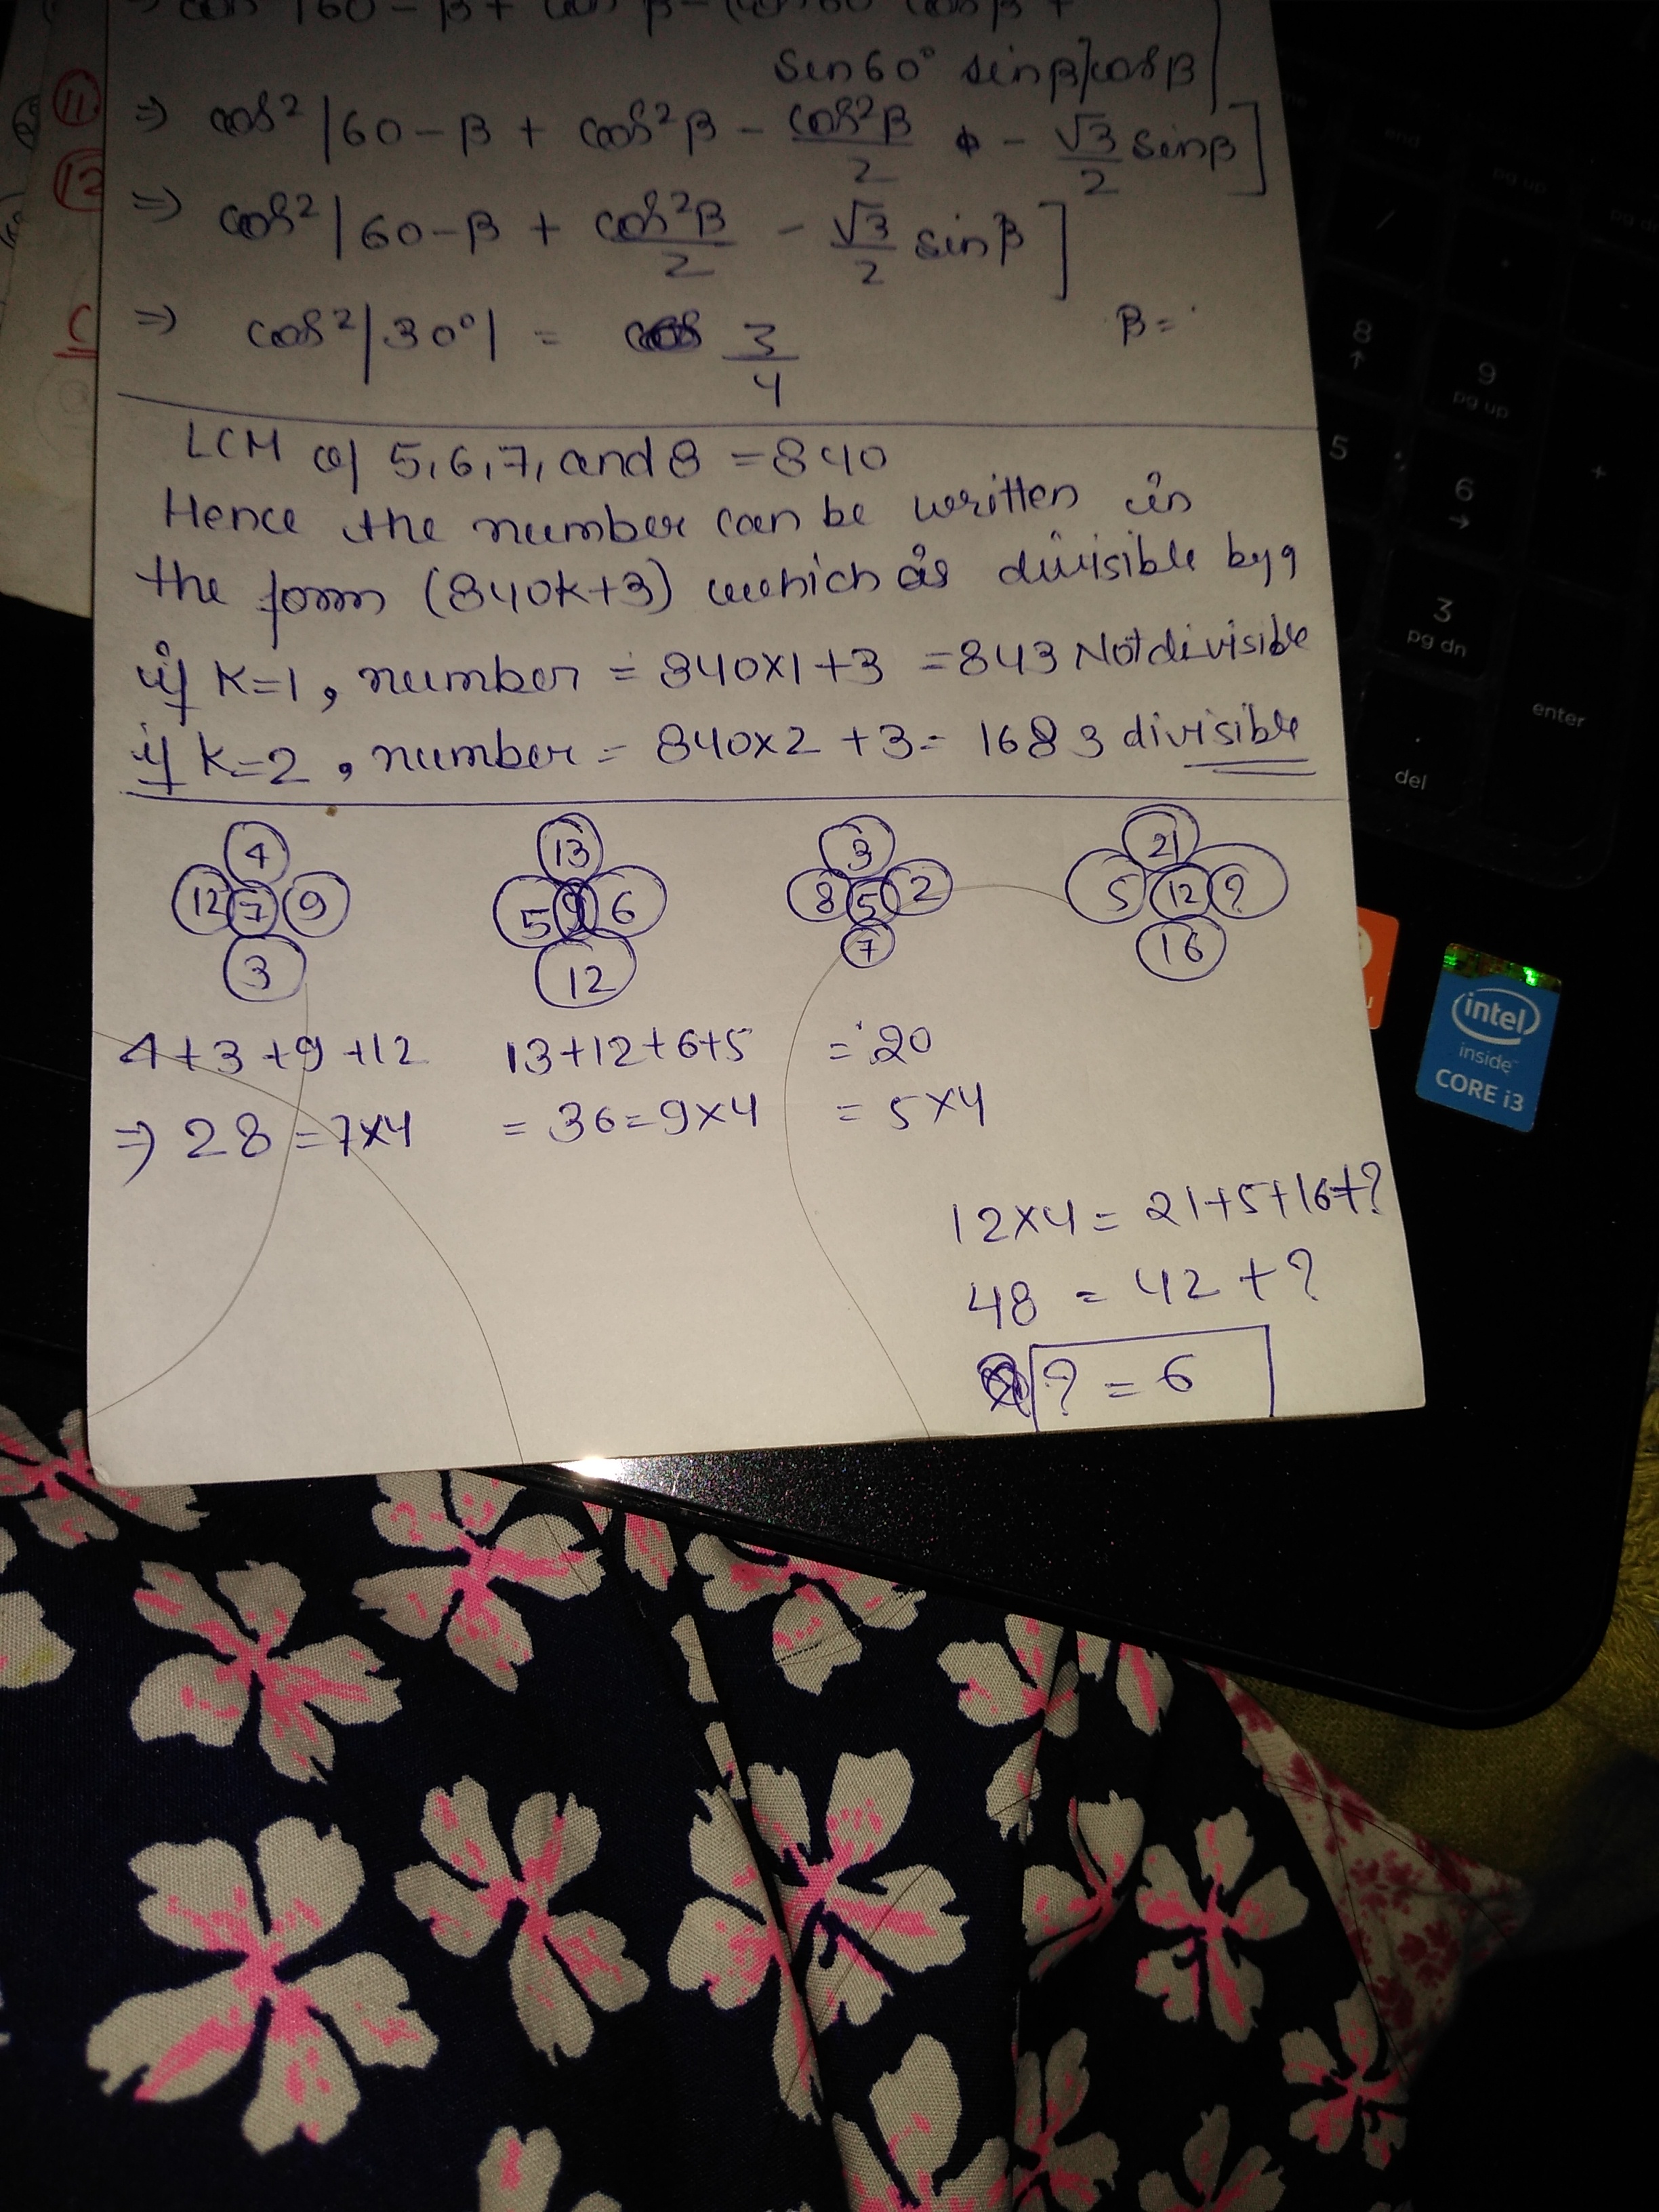 Sin60° sinβ]cosβ]
⇒ cos²|60-β + cos²β - cos²β/2 - √3/2 sinβ]
⇒ cos²|60-β + cos²β/2 - √3/2 sinβ]
⇒ cos²|30°| = 3/4
β=
11
12
C
LCM of 5,6,7, and 8 = 840
Hence the number can be written in
the form (840k+3) which is divisible by 9
if K=1, number = 840x1+3 =843 Not divisible
if K=2, number = 840x2 +3= 1683 divisible
4 13 3 21
12 7 9 5 9 6 8 5 2 5 12 ?
3 12 7 16
4+3+9+12 13+12+6+5 = 20
⇒ 28 = 7x4 = 36=9x4 = 5x4
12x4= 21+5+16+?
48 = 42 + ?
? = 6
end
pg up
/
8
↑
9
pg up
5
6
→
+
3
pg dn
enter
.
del
intel
inside™
CORE i3